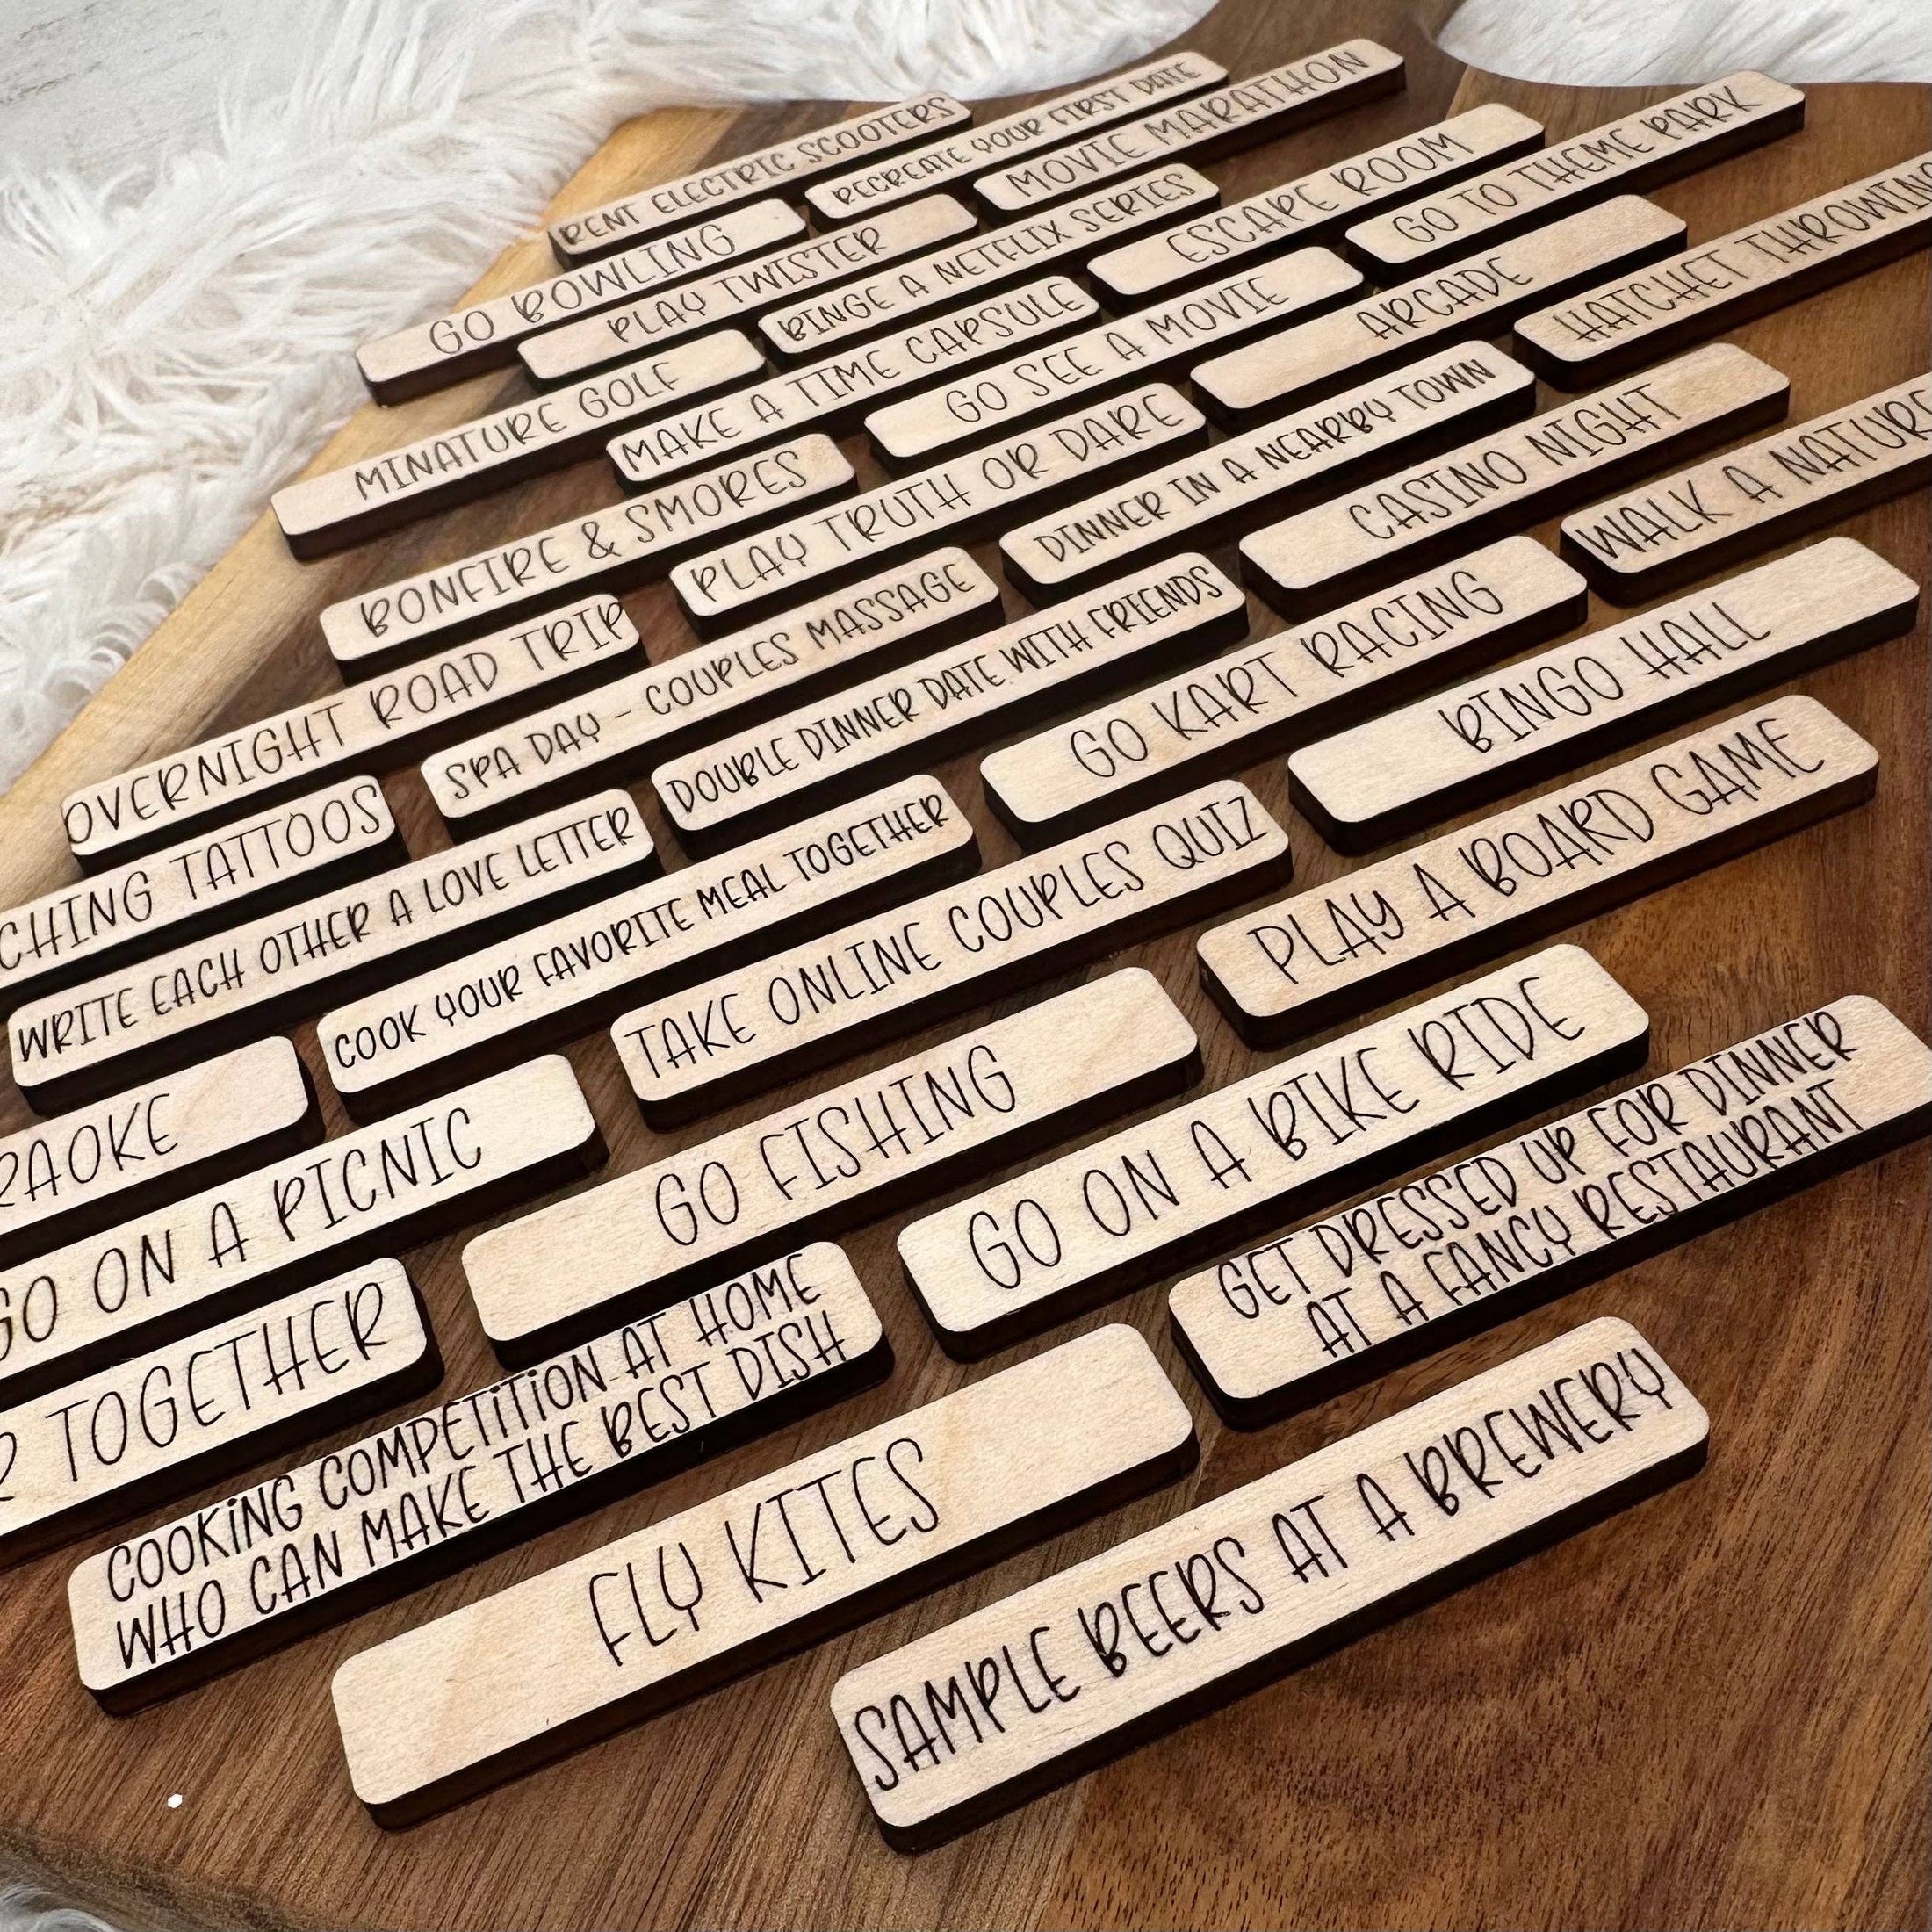 RENT ELECTRIC SCOOTERS
RECREATE YOUR FIRST DATE
MOVIE MARATHON
GO BOWLING
PLAY TWISTER
BINGE A NETFLIX SERIES
ESCAPE ROOM
GO TO THEME PARK
MINATURE GOLF
MAKE A TIME CAPSULE
GO SEE A MOVIE
ARCADE
HATCHET THROWING
BONFIRE & SMORES
PLAY TRUTH OR DARE
DINNER IN A NEARBY TOWN
CASINO NIGHT
WALK A NATURE
OVERNIGHT ROAD TRIP
SPA DAY - COUPLES MASSAGE
DOUBLE DINNER DATE WITH FRIENDS
GO KART RACING
BINGO HALL
CHING TATTOOS
WRITE EACH OTHER A LOVE LETTER
COOK YOUR FAVORITE MEAL TOGETHER
TAKE ONLINE COUPLES QUIZ
PLAY A BOARD GAME
RAOKE
GO ON A PICNIC
GO FISHING
GO ON A BIKE RIDE
GET DRESSED UP FOR DINNER
AT A FANCY RESTAURANT
R TOGETHER
COOKiNG COMPETiTiON AT HOME
WHO CAN MAKE THE BEST DISH
FLY KITES
SAMPLE BEERS AT A BREWERY